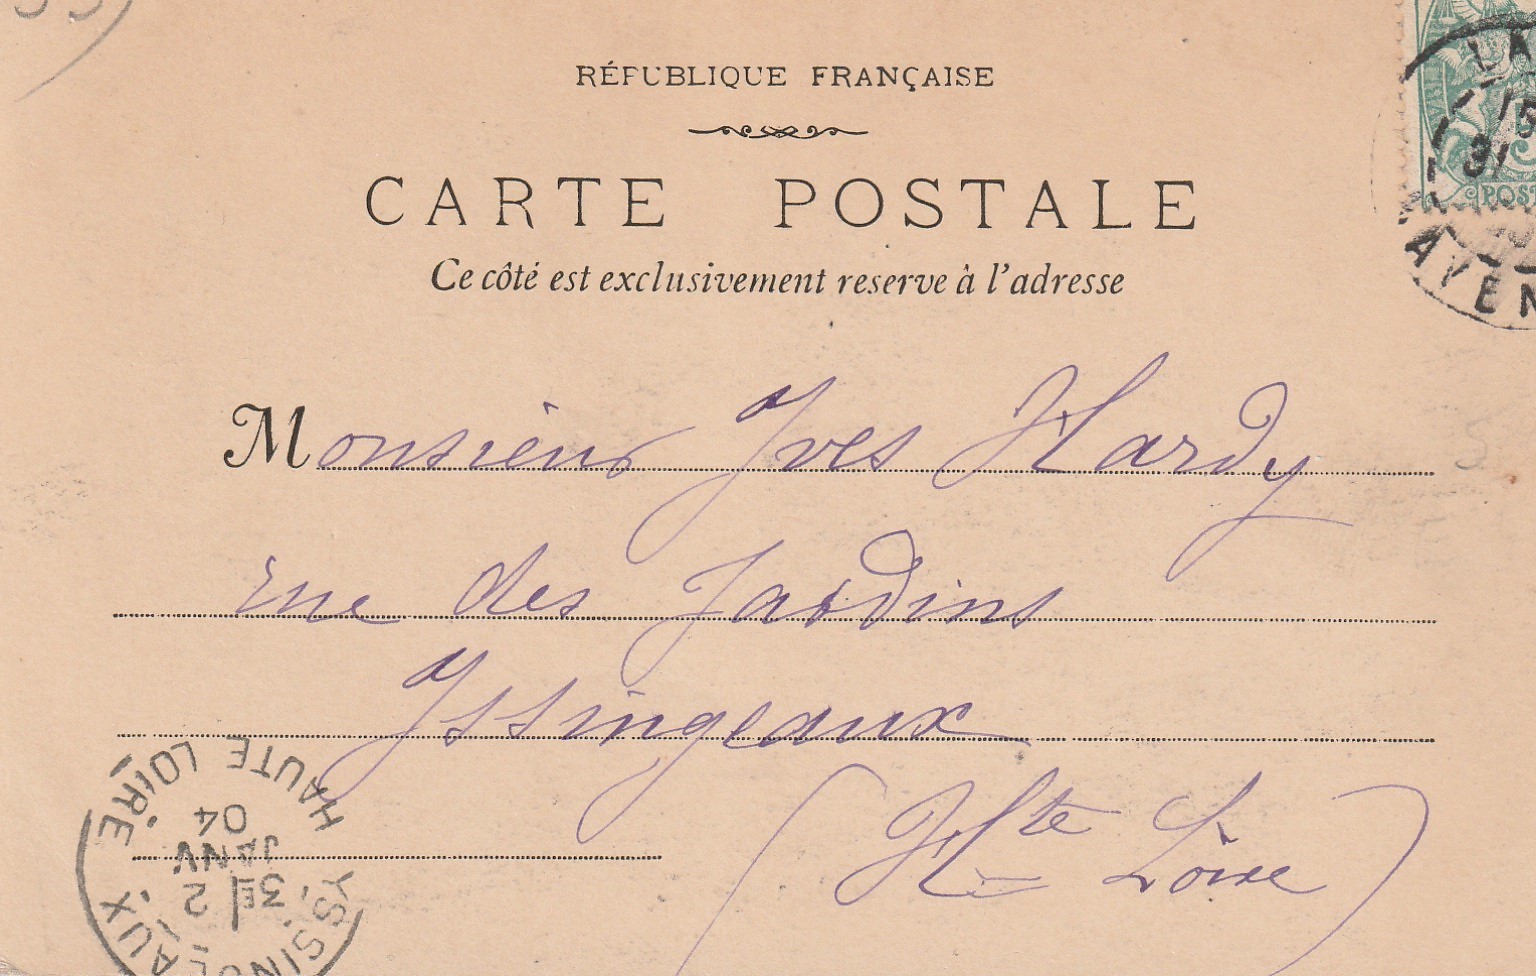 RÉPUBLIQUE FRANÇAISE
CARTE POSTALE
Ce côté est exclusivement reserve à l'adresse
Monsieur Yves Hardy
rue des Jardins
Yssingeaux
(Hte Loire)
POS
15
31
AVEN
HAUTE LOIRE
04
JANV
2
3E
YSSINGEAUX